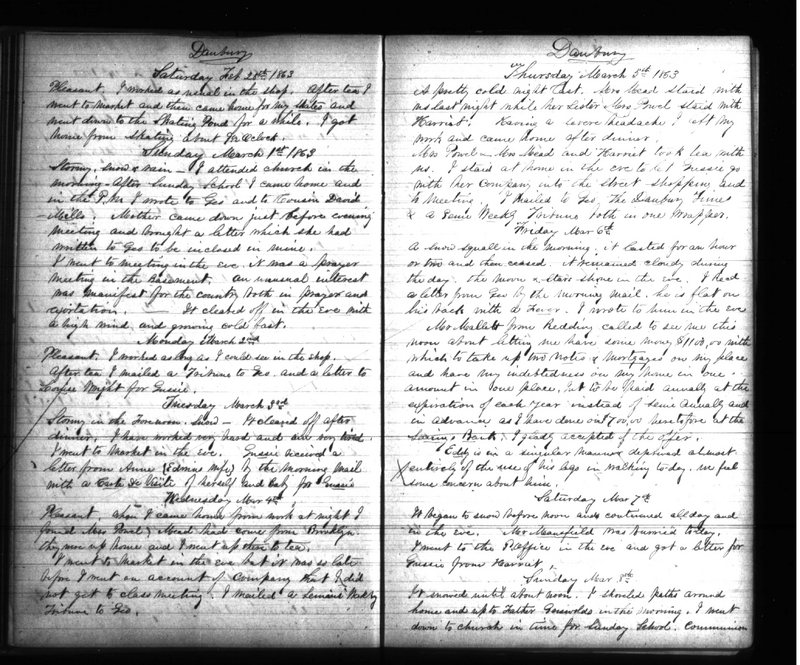 Danbury
Saturday Feb 28th 1863
Pleasant. I worked as usual in the shop. After tea I
went to market and then came home for my skates and
went down to the Skating Pond for a while. I got
home from skating about o'clock.
Sunday March 1st 1863
Stormy, snow & rain – I attended church in the
morning. After Sunday School I came home and
in the P.M. I wrote to Geo and to Cousin David
Mills. Mother came down just before evening
meeting and brought a letter which she had
written to Geo to be inclosed in mine.
I went to meeting in the eve. it was a prayer
meeting in the Basement. an unusual interest
was manifest for the country both in prayer and
exortation. It cleared off in the eve with
a high wind and growing cold fast.
Monday March 2nd
Pleasant. I worked as long as I could see in the shop.
After tea I mailed a Tribune to Geo. and a letter to
Louise Wright for Gussie.
Tuesday March 3rd
Stormy in the forenoon. Snow – It cleared off after
dinner. I have worked very hard and am very tired.
I went to market in the eve. Gussie received a
letter from Anne (Edmds wife) by the morning Mail
with a Carte De Visite of herself and baby for Gussie
Wednesday Mar 4th
Pleasant. When I came home from work at night I
found Mrs Powel & Mead had come from Brooklyn.
they were up home and I went up then to tea.
I went to market in the eve. but it was so late
before I went on account of company that I did
not get to class meeting. I mailed a Semi Weekly
Tribune to Geo.
Danbury
Thursday March 5th 1863
A pretty cold night last. Mrs Mead staid with
us last night while her sister Mrs Powel staid with
Harriet. Having a severe headache I left my
work and came home after dinner.
Mrs Powel – Mrs Mead and Harriet took tea with
us. I staid at home in the eve to let Gussie go
with her company into the street shopping and
to Meeting. I mailed to Geo, The Danbury Times
& a Semi Weekly Tribune both in one wrapper.
Friday Mar 6th
A snow squall in the morning, it lasted for an hour
or two and then ceased. it remained cloudy during
the day. the moon & stars shone in the eve. I Read
a letter from Geo by the morning Mail. he is flat on
his back with a Fever. I wrote to him in the eve
Mr Mallett from Redding called to see me this
noon about letting me have some money $1100,00 with
which to take up two notes & Mortgages on my place
and have my indebtedness on my home in one
amount in one place, but to be paid anualy at the
expiration of each year instead of semi anualy and
in advance as I have done on 700,00 heretofore at the
Savings Bank. I gladly accepted of the offer.
Eddy is in a singular manner deprived almost
entirely of the use of his legs in walking today. we feel
some concern about him.
Saturday Mar 7th
It began to snow before noon and continued all day and
in the eve. Mr Mansfield was burried today.
I went to the P.Office in the eve and got a letter for
Gussie from Harriet.
Sunday Mar. 8th
It snowed until about noon. I shoveled paths around
home and up to Father Griswolds in the morning. I went
down to church in time for Sunday School. Communion